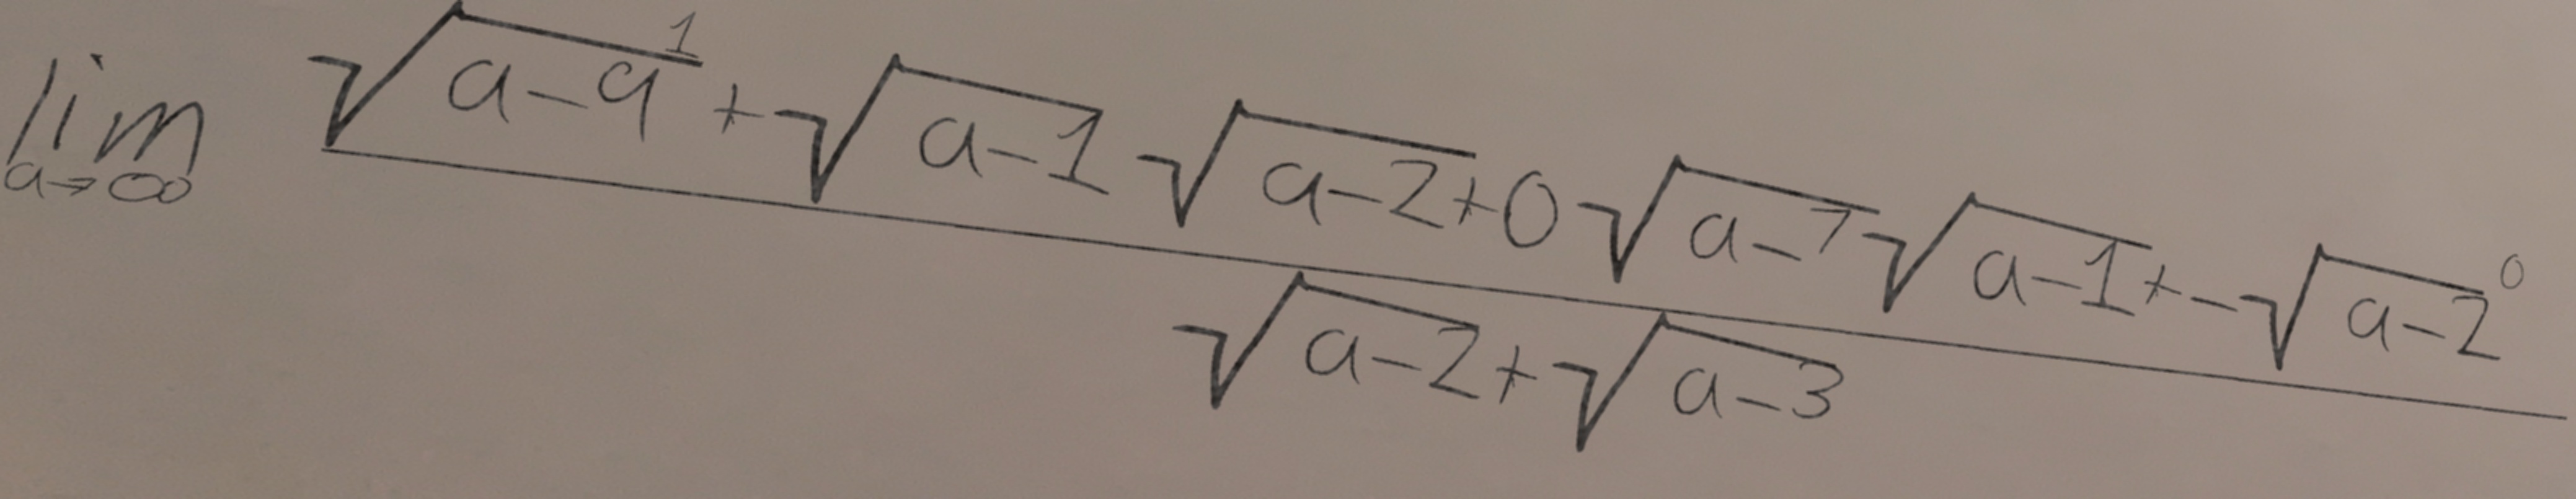 \lim_{a \to \infty} \frac{\sqrt{a-9}^{1} + \sqrt{a-1} \sqrt{a-2} + 0 \sqrt{a-7} \sqrt{a-1} + - \sqrt{a-2}^{0}}{\sqrt{a-2} + \sqrt{a-3}}